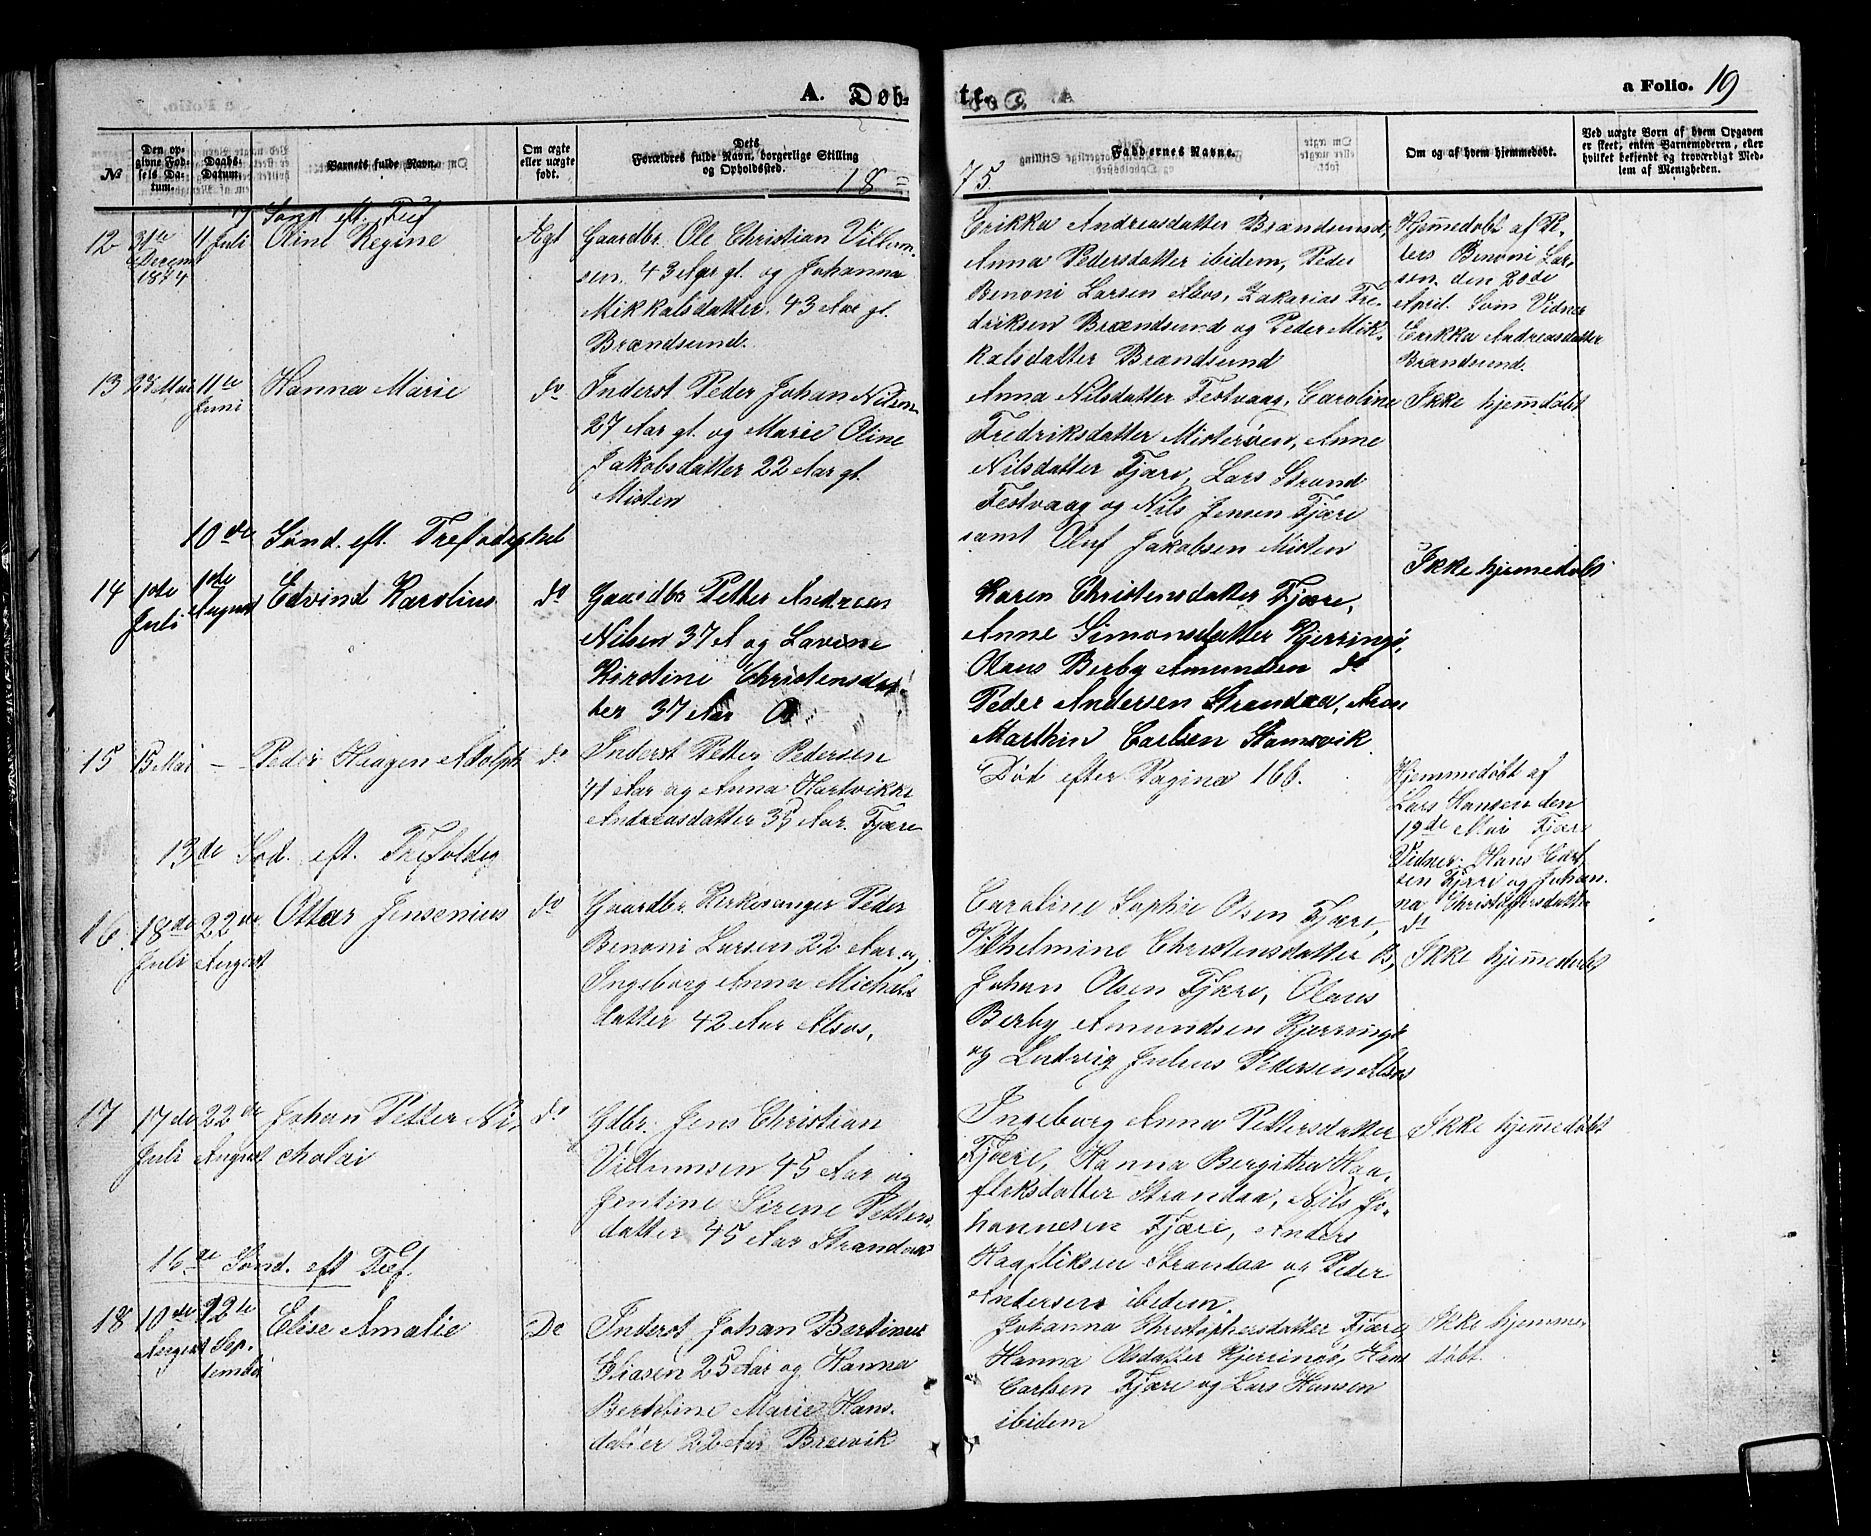 A. Døb-
te.
a Folio. 19
№
Den op-
givne Fød-
sels Da-
tum.
Daabs-
Datum.
Barnets fulde Navn.
Om ægte
eller uægte
født.
Dets
Forældres fulde Navn, borgerlige Stilling
og Opholdssted.
18=
75.
Faddernes Navne.
Om og af hvem hjemmedøbt.
Ved uægte Born af hvem Opgaven
er skeet, enten Barnemoderen, eller
hvilket bekjendt og troværdigt Med-
lem af Menigheden.
7 Sønd. eft. Tref
12
31te
Decemb
1874
11
Juli
Oline Regine
Ægt
Gaardbr. Ole Christian Villum-
sen 43 Aar gl. og Johanna
Mikkalsdatter 43 Aar gl.
Brændsund.
Erikka Andreasdatter Brændsund,
Anna Pedersdatter ibidem, Peder
Benoni Larsen Alsos, Zakarias Fre-
driksen Brændsund og Peder Mik-
kalsdatter Brændsund
Hjemmedøbt af P.
ters Benoni Lar-
sen den 20de
April. Som Vidner
Erikka Andreasdatter
Brændsund.
13
23 Mai
11te
Juni
Hanna Marie
do
Inderst Peder Johan Nilsen
27 Aar gl. og Marie Oline
Jakobsdatter 22 Aar gl.
Misten
Anna Nilsdatter Festvaag, Caroline
Fredriksdatter Misterøen, Anne
Nilsdatter Fjære, Lars Strand
Festvaag og Nils Jensen Fjære
samt Oluf Jakobsen Misten
Ikke hjemdøbt
10de Sønd. eft. Trefoldighet
14
1ste
Juli
1ste
August
Edvind Karolius
do
Gaardbr Petter Andreas
Nilsen 37 A og Lavine
Kirstine Christensdat-
ter 37 Aar
Karen Christensdatter Fjære,
Anne Simonsdatter Kjerringø,
Olaus Berby Amundsen do
Peder Andersen Strandaa, Aron
Marthin Carlsen Stamsvik
Ikke hjemmedøbt
15
15 Mai
— —
Peder Hagen Adolph
do
Inderst Petter Pedersen
41 Aar og Anna Hartvikke
Andreasdatter 35 Aar. Fjære
Død efter Pagina 166.
Hjemmedøbt af
Lars Hansen den
19de Mai Fjære
Vidner: Hans Carl-
sen Fjære og Johan-
na Christoffersdatter
do
13de Sød. eft. Trefoldig
16
18de
Juli
22de
August
Ottar Jensenius
do
Gaardbr. Kirkesanger Peder
Benoni Larsen 22 Aar og
Ingeborg Anna Michels
datter 42 Aar Alsos,
Caroline Sophie Olsen Fjære,
Vilhelmine Christensdatter B,
Johan Olsen Fjære, Olaus
Berby Amundsen Kjerringø
og Ludvig Julius Pedersen Alsos
Ikke hjemmedøbt
17
17de
Juli
22de
August
Johan Petter Ni-
cholai
do
Gdbr. Jens Christian
Villumsen 45 Aar og
Jentine Sirene Petters
datter 45 Aar Strandaa
Ingeborg Anna Pettersdatter
Fjære, Hanna Bergitha Haa-
fliksdatter Strandaa, Nils Jo-
hannesen Fjære, Anders
Haafliksen Strandaa og Peder
Andersen ibidem.
Ikke hjemmedøbt
16de Sønd. eft Tref.
18
10de
August
12te
Sep-
tember
Elise Amalie
Do
Inderst Johan Bertinus
Eliasen 25 Aar og Hanna
Bertoline Marie Hans-
datter 22 Aar Breivik
Johanna Christophersdatter Fjære
Hanna Olsdatter Kjerringø, Hans
Carlsen Fjære og Lars Hansen
ibidem
Ikke hjemme
døbt.